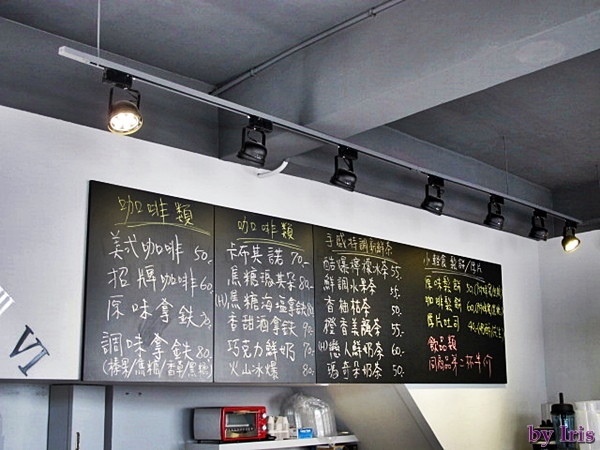 VI
咖啡類
美式咖啡 50.
招牌咖啡 60
原味拿鐵
調味拿鐵 80.
(榛果/焦糖/香草/黑糖)
咖啡類
卡布其諾 70.-
焦糖瑪其朵 80.-
(H)焦糖海塩拿鐵
香甜酒拿鐵 90.
巧克力鮮奶 70.-
火山冰爆 80.-
手感特調
酷爆檸檬冰茶 55.
鮮調水果茶 55.
香柚桔茶 50.
橙香美顏茶 55.
(H)戀人鮮奶茶 60.
瑪奇朵奶茶 50.
小輕食 鬆餅/厚片
原味鬆餅
咖啡鬆餅
厚片吐司
飲品類
同商品第二杯半價
by Iris